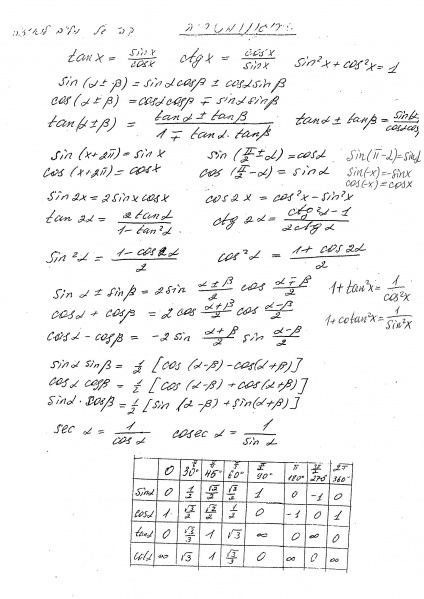 טריגונומטריה
tan x = sin x / cos x   ctg x = cos x / sin x   sin²x + cos²x = 1
sin(α ± β) = sinα cosβ ± cosα sinβ
cos(α ± β) = cosα cosβ ∓ sinα sinβ
tan(α ± β) = (tanα ± tanβ) / (1 ∓ tanα · tanβ)   tanα ± tanβ =
sin(x + 2π) = sin x   sin(π/2 ± α) = cosα   sin(π - α) = sinα
cos(x + 2π) = cos x   cos(π/2 - α) = sinα   sin(-x) = -sin x
cos(-x) = cos x
sin 2x = 2 sin x cos x   cos 2x = cos²x - sin²x
tan 2α = 2tanα / (1 - tan²α)   ctg 2α = (ctg²α - 1) / (2ctgα)
sin²α = (1 - cos2α) / 2   cos²α = (1 + cos2α) / 2
sinα ± sinβ = 2 sin (α ± β)/2 cos (α ∓ β)/2   1 + tan²x = 1 / cos²x
cosα + cosβ = 2 cos (α + β)/2 cos (α - β)/2   1 + cotan²x = 1 / sin²x
cosα - cosβ = -2 sin (α + β)/2 sin (α - β)/2
sinα sinβ = 1/2 [cos(α - β) - cos(α + β)]
cosα cosβ = 1/2 [cos(α - β) + cos(α + β)]
sinα · cosβ = 1/2 [sin(α - β) + sin(α + β)]
sec α = 1 / cosα   cosec α = 1 / sinα
0   π/6 30°   π/4 45°   π/3 60°   π/2 90°   π 180°   3π/2 270°   2π 360°
sinα   0   1/2   √2/2   √3/2   1   0   -1   0
cosα   1   √3/2   √2/2   1/2   0   -1   0   1
tanα   0   √3/3   1   √3   ∞   0   ∞   0
ctgα   ∞   √3   1   √3/3   0   ∞   0   ∞